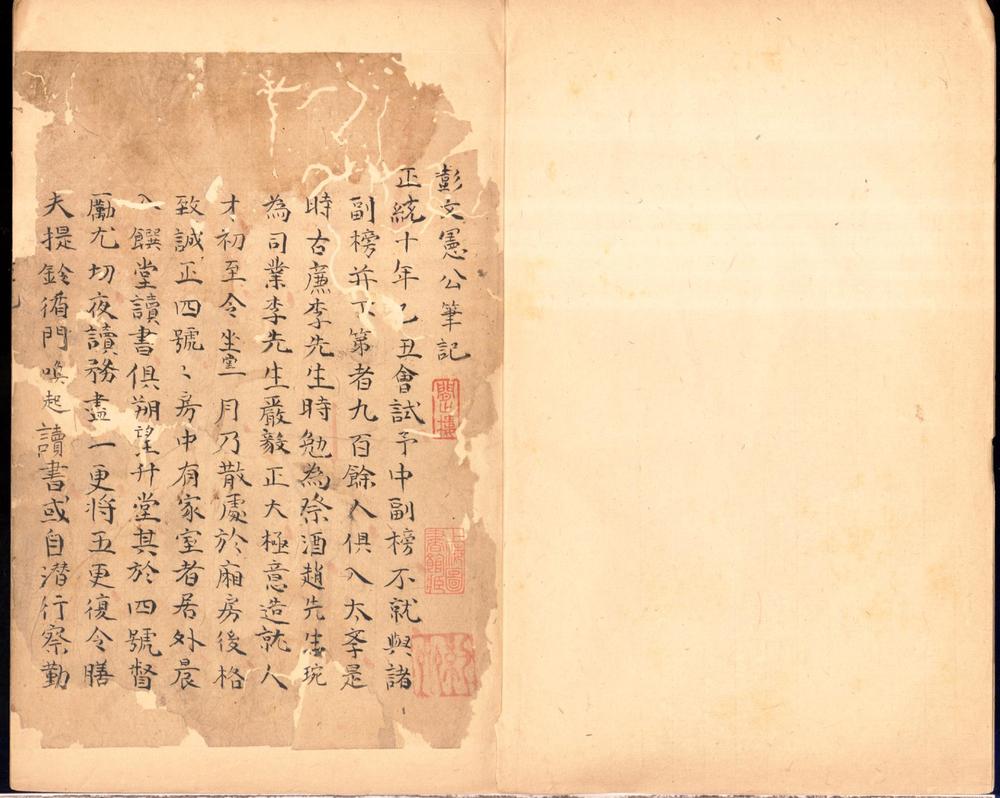 彭文憲公筆記
正統十年乙丑會試予中副榜不就與諸
副榜并下第者九百餘人俱入太孝是
時古廉李先生時勉為祭酒趙先生琬
為司業李先生嚴毅正大極意造就人
才初至令坐堂一月乃散處於廂房後格
致誠正四號〻房中有家室者居外晨
入饌堂讀書俱朔望升堂其於四號督
勵尤切夜讀務盡一更將五更復令膳
夫提鈴循門喚起讀書或自潛行察勤
上海圖書館藏